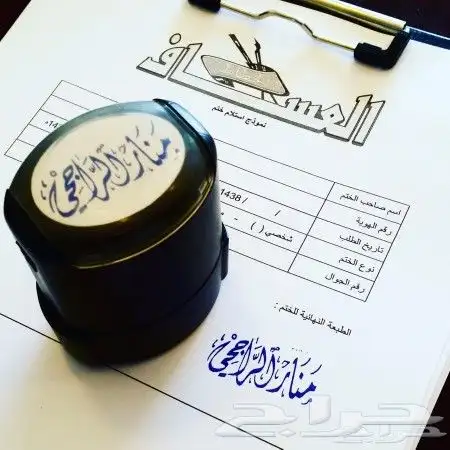 العساف
نموذج استلام ختم
اسم صاحب الختم
رقم الهوية
تاريخ الطلب / / 1438
نوع الختم شخصي ( ) -
رقم الجوال
الطبعة النهائية للختم :
منار الراجحي
منار الراجحي
حراج